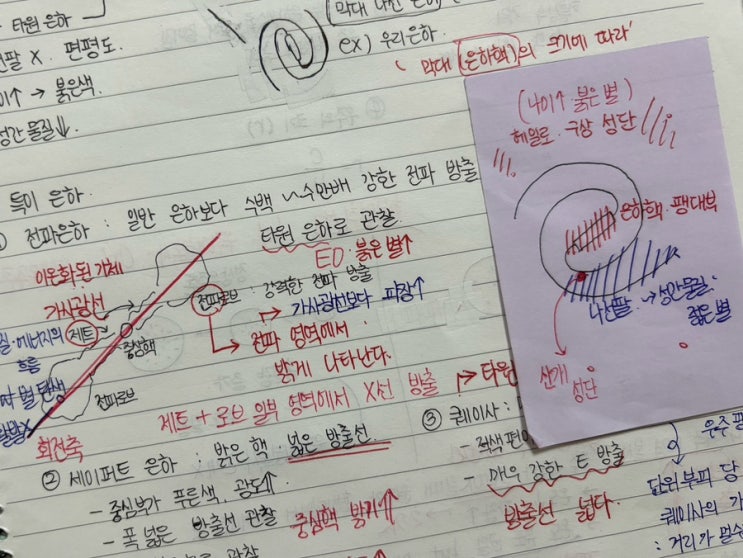 타원 은하
팔 X. 편평도.
↑ → 붉은색.
성간 물질↓.
막대 나선 은하
ex) 우리은하.
막대 (은하핵)의 크기에 따라
특이 은하.
전파은하 : 일반 은하보다 수백 ~수만배 강한 전파 방출
타원 은하로 관찰.
E0 · 붉은 별↑
이온화된 기체
가시광선
전파로브 : 강력한 전파 방출
↳ 가시광선보다 파장↑
에너지의
제트
흐름
중심핵
→ 전파 영역에서
밝게 나타난다.
별 탄생
전파로브
회전축
제트 + 로브 일부 영역에서 X선 방출
→ 타원
② 세이퍼트 은하 : 밝은 핵 · 넓은 방출선
- 중심부가 푸른색, 광도↑
- 폭 넓은 방출선 관찰
중심핵 밝기↑
은하로 관찰
③ 퀘이사 :
- 적색편이
- 매우 강한 E 방출
방출선 넓다.
우주
단위부피 당
퀘이사의
: 거리가 멀수
(나이↑ 붉은 별)
헤일로 · 구상 성단
은하핵 · 팽대부
나선팔 → 성간물질.
젊은 별
산개
성단